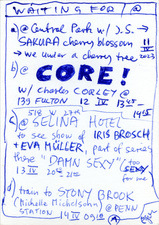 WAITING FOR / @
a) @ Central Park w/ J.S. →
SAKURA cherry blossom 11 IV 2023
→ we under a cherry tree
b) @
CORE!
w/ CHARLES CORLEY @
139 FULTON 12 IV 13 45 –
14 50
c) @ SELINA HOTEL
to see show of IRIS BROSCH
+ EVA MÜLLER, part of series
there "DAMN SEXY" too SEXY
13 IV 20 for me
d) train to STONY BROOK
(Michelle Mickelsohn) @ PENN
STATION 14 IV 09 10